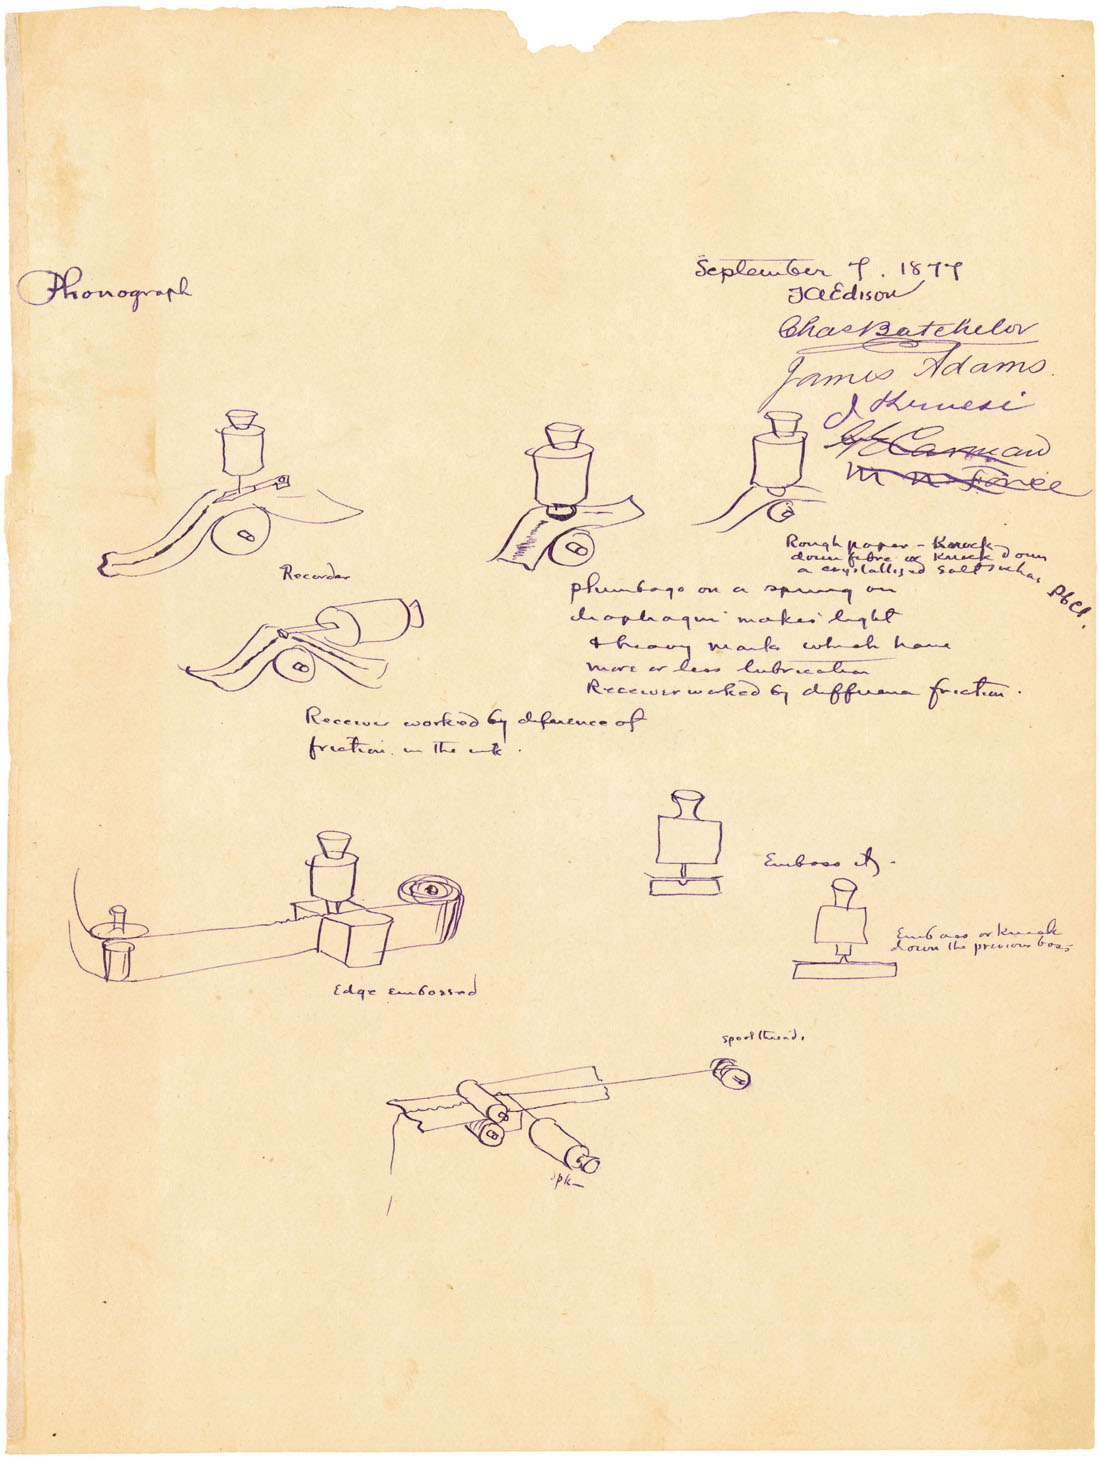 Phonograph
September 7. 1877
TAEdison
Chas Batchelor
James Adams.
J Kruesi
Carman
Recorder
Rough paper - Knock
down fibre or Knock down
a crystallized salt such as PbCl.
plumbago on a spring on
diaphragm makes light
& heavy marks which have
more or less lubrication
Receiver worked by difference friction.
Receiver worked by diference of
friction. in the ink.
Emboss it
Emboss or knock
down the previous boss
Edge embossed
spool thread.
spk